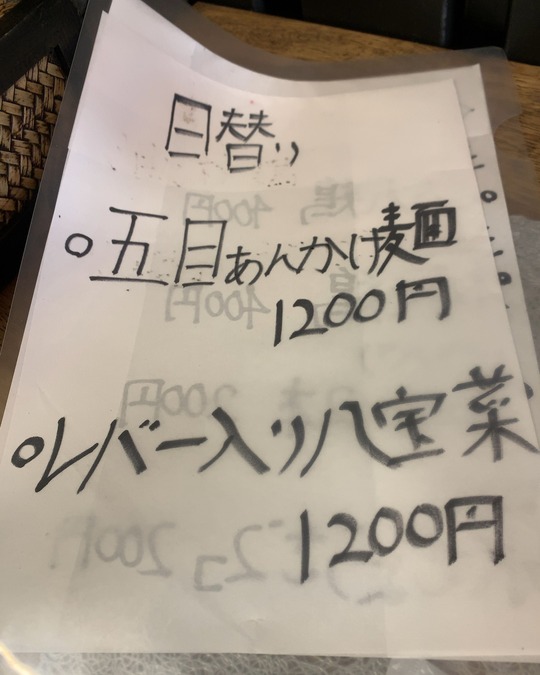 日替り
○五目あんかけ麺
1200円
○レバー入り八宝菜
1200円